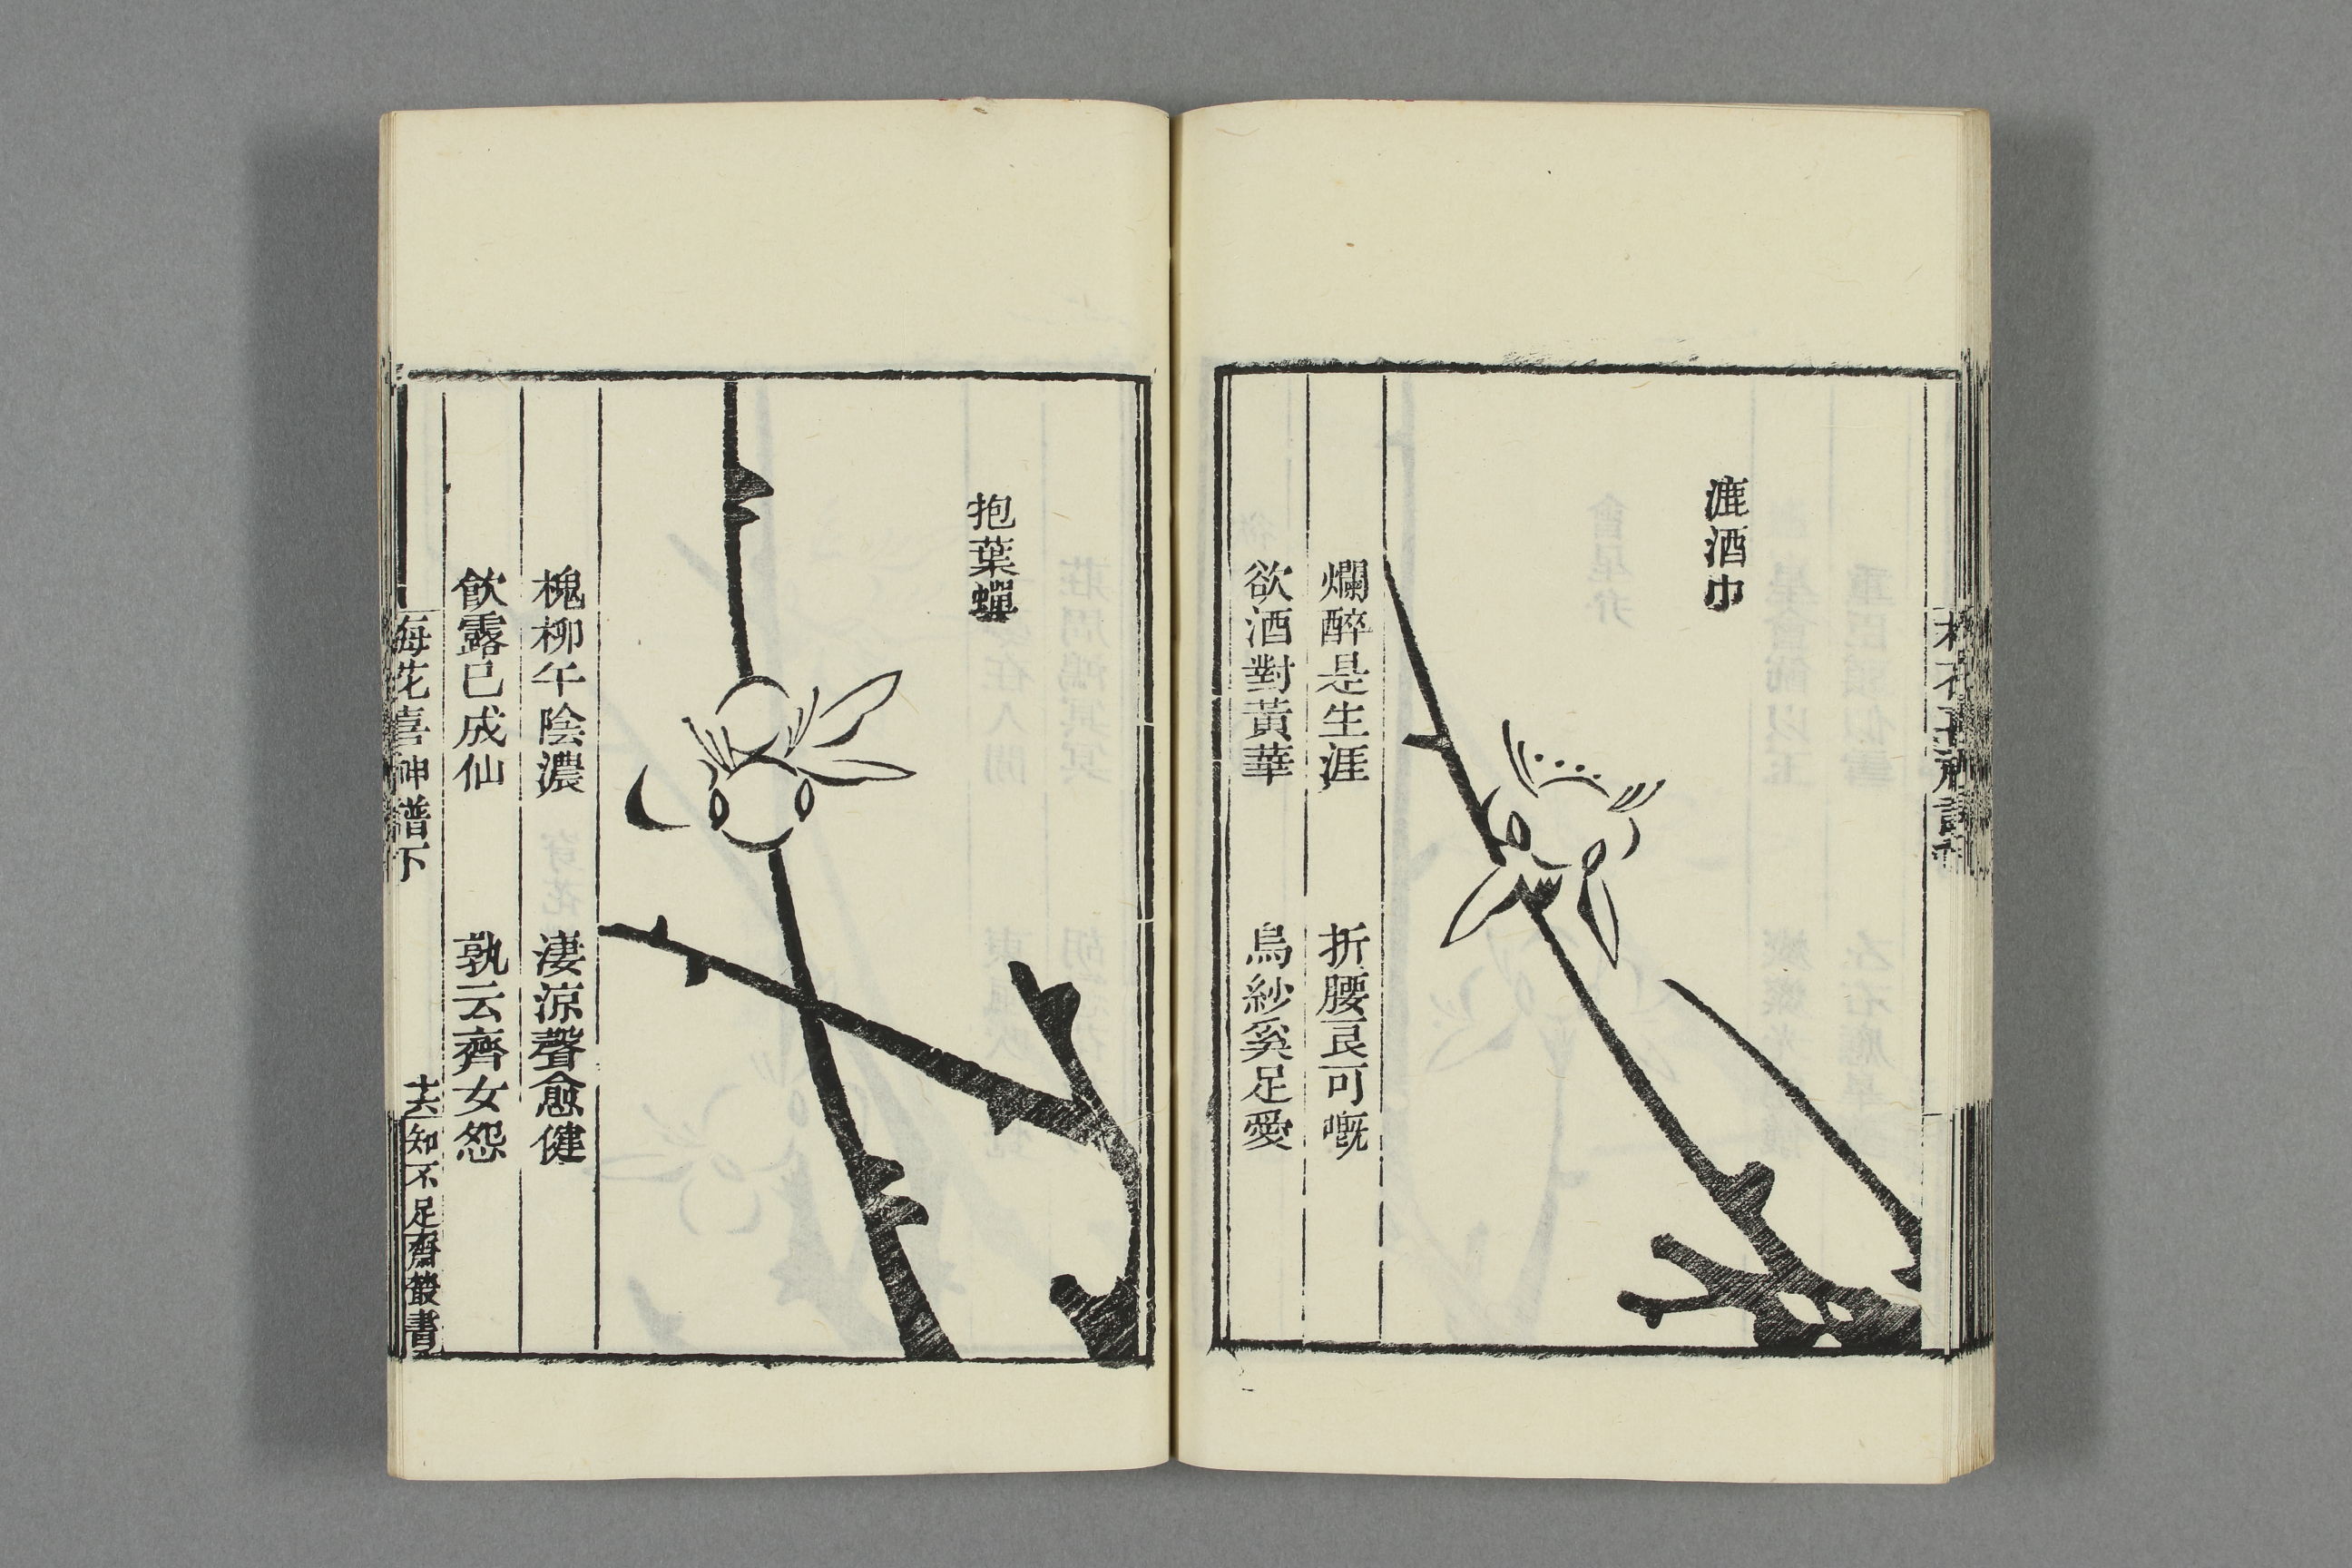 漉酒巾
爛醉是生涯　折腰良可嘅
欲酒對黃華　烏紗奚足愛
抱葉蟬
槐柳午陰濃　淒涼聲愈健
飲露已成仙　孰云齊女怨
梅花喜神譜下　十六　知不足齋叢書